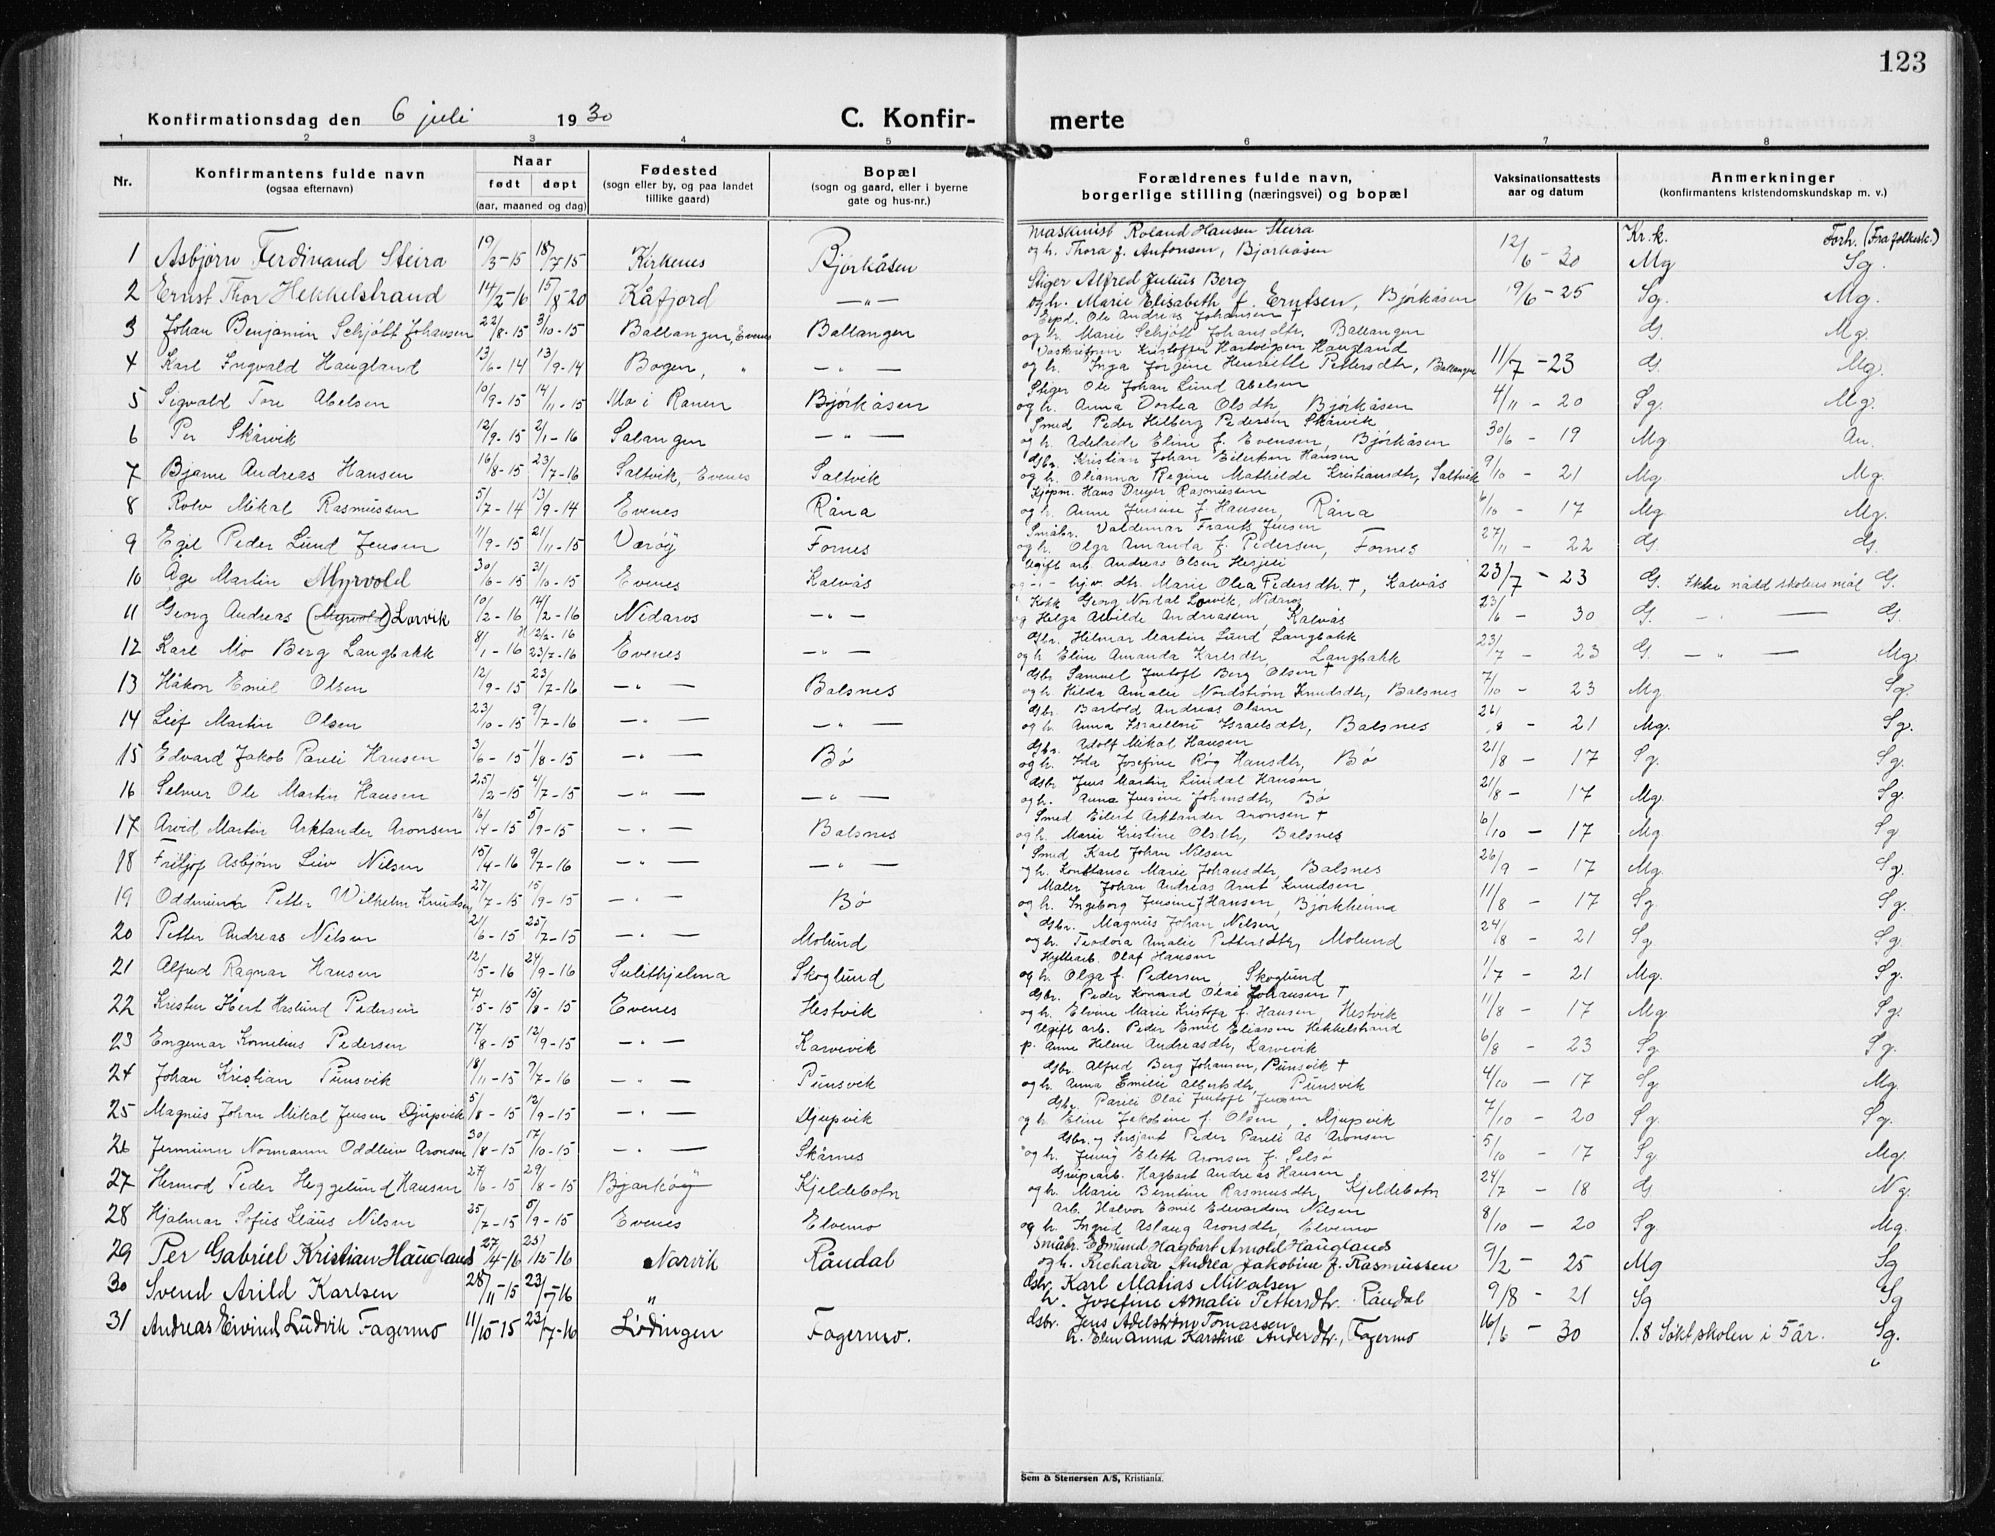 123
Konfirmationsdag den 6 juli 1930 C. Konfirmerte
1 2 3 4 5 6 7 8
Nr. Konfirmantens fulde navn (ogsaa efternavn) Naar født døpt (aar, maaned og dag) Fødested (sogn eller by, og paa landet tillike gaard) Bopæl (sogn og gaard, eller i byerne gate og hus-nr.) Forældrenes fulde navn, borgerlige stilling (næringsvei) og bopæl Vaksinationsattests aar og datum Anmerkninger (konfirmantens kristendomskundskap m. v.)
Maskinist Roland Hansen Steira Kr.k. Forh. (Fra folkesk.)
1 Asbjørn Ferdinand Steira 19/3-15 18/7 15 Kirkenes Bjørkåsen og h. Thora f. Antonsen, Bjørkåsen 12/6 - 30 Mg Sg.
Stiger Alfred Julius Berg
2 Ernst Thor Hekkelstrand 14/2-16 15/8-20 Kåfjord —"— og h. Marie Elisabeth f. Erntsen, Bjørkåsen 19/6 - 25 Sg. Mg.
Expd. Ole Andreas Johansen †
3 Johan Benjamin Schjött Johansen 22/8-15 3/10-15 Ballangen, Evenes Ballangen og h. Marie Schjött Johansdtr. Ballangen G. Mg.
Kristoffer Hartvigsen Haugland
4 Karl Ingvald Haugland 13/6-14 13/9-14 Bogen, " —"— og h. Inga Jørgine Henriette Pettersdtr, Ballangen 11/7 - 23 G. Mg.
Stiger Ole Johan Lund Abelsen
5 Sigvald Tore Abelsen 10/9-15 14/11-15 Mo i Ranen Bjørkåsen og h. Anna Dortea Olsdtr, Bjørkåsen 4/11 - 20 Sg. Mg.
Smed Peder Hilberg Pedersen Skårvik
6 Per Skårvik 12/9-15 2/1-16 Salangen —"— og h. Adelaide Eline f. Evensen, Bjørkåsen 30/6 - 19 Mg. An.
Gbr. Kristian Johan Eilertsen Hansen
7 Bjarne Andreas Hansen 16/8-15 23/7-16 Saltvik, Evenes Saltvik og h. Olianna Regine Mathilde Kristiansdtr, Saltvik 9/10 - 21 Mg. Mg.
Kjøpm. Hans Dreyer Rasmussen
8 Rolv Mikal Rasmussen 5/7-14 13/9-14 Evenes Råna og h. Anne Jensine f. Hansen, Råna 6/10 - 17 Mg. Mg.
Småbr. Valdemar Frantz Jensen
9 Egil Peder Lund Jensen 11/9-15 21/11-15 Værøy Fornes og h. Olga Amanda f. Pedersen, Fornes 27/11 - 22 G. G.
Ugift arb. Andreas Olsen Hesjeli
10 Åge Martin Myrvold 30/6-15 31/10-15 Evenes Kalvås —"— hjv. dtr. Marie Olea Pedersdtr. †, Kalvås 23/7 - 23 G. Ikke nådd skolens mål G.
Kokk Georg Nordal Lorvik, Nidaros
11 Georg Andreas (Myrvold) Lorvik 10/2-16 14/2-16 Nidaros —"— og Helga Alvilde Andreassen, Kalvås 23/6 - 30 G. —"— G.
Gbr. Hilmar Martin Lund Langbakk
12 Karl Mo Berg Langbakk 8/1-16 H 12/2-16 23/7-16 Evenes —"— og h. Eline Amanda Karlsdtr, Langbakk 23/7 - 23 G. —"— Mg.
Gbr Samuel Jentoft Berg Olsen †
13 Håkon Emil Olsen 12/9-15 23/7-16 —"— Balsnes og h. Hilda Amalie Nordstrøm Knudsdtr, Balsnes 7/10 - 23 Mg. Sg.
Gbr. Bartold Andreas Olsen
14 Leif Martin Olsen 23/10-15 9/7-16 —"— —"— og h. Anna Israeline Israelsdtr, Balsnes 26/8 - 21 Mg. Sg.
Gbr. Adolf Mikal Hansen
15 Edvard Jakob Pareli Hansen 3/6-15 1/8-15 —"— Bø og h. Ida Josefine Røg Hansdtr, Bø 21/8 - 17 Sg. Sg.
Gbr. Jens Martin Lundal Hansen
16 Selmer Ole Martin Hansen 25/2-15 4/7-15 —"— —"— og h. Anna Jensine Johnsdtr, Bø 21/8 - 17 Mg. Sg.
Smed Eilert Arktander Aronsen †
17 Arvid Martin Arktander Aronsen 16/4-15 5/9-15 —"— Balsnes og h. Marie Kristine Olsdtr, Balsnes 6/10 - 17 Mg. Sg
Smed Karl Johan Nilsen
18 Fritjof Asbjørn Liev Nilsen 15/4-16 9/7-16 —"— —"— og h. Konstanse Marie Johansdtr, Balsnes 26/9 - 17 Mg. Sg.
Maler Johan Andreas Arnt Knudsen
19 Oddmund Petter Wilhelm Knudsen 27/7-15 15/9-15 —"— Bø og h. Ingeborg Jensine f. Hansen, Bjørkheima 11/8 - 17 Sg. Sg.
Gbr. Magnus Johan Nilsen
20 Petter Andreas Nilsen 21/6-15 25/7-15 —"— Molund og h. Teodora Amalie Pettersdtr, Molund 24/8 - 21 Sg. Sg.
Hyttearb. Olaf Hansen
21 Alfred Ragnar Hansen 12/5-16 24/9-16 Sulithjelma Skoglund og h. Olga f. Pedersen, Skoglund 1/7 - 21 Mg. Sg.
Gbr. Peder Konrad Olai Johansen †
22 Kristen Hert Haslund Pedersen 7/5-15 15/8-15 Evenes Hestvik og h. Elvine Marie Kristofa f. Hansen, Hestvik 11/8 - 17 Mg. Sg.
Ugift arb. Peder Emil Eliassen Hekkelstrand
23 Engemar Kornelius Pedersen 17/8-15 12/9-15 —"— Karvevik p. Anne Helene Andreasdtr, Karvevik 6/8 - 23 Sg. Sg.
Gbr. Alfred Berg Johansen, Punsvik †
24 Johan Kristian Punsvik 18/11-15 9/7-16 —"— Punsvik og h. Anna Emilie Albertsdtr, Punsvik 4/10 - 17 Sg. Mg.
Gbr. Pareli Olai Jentoft Jensen
25 Magnus Johan Mikal Jensen Djupvik 5/8-15 12/9-15 —"— Djupvik og h. Eline Jakobine f. Olsen, Djupvik 7/10 - 20 Sg. Sg.
Gbr. og Sersjant Peder Pareli As Aronsen
26 Jermunn Normann Oddleiv Aronsen 30/8-15 17/10-15 —"— Skårnes og h. Jenny Eleth Aronsen f. Selsø 5/10 - 17 Sg. Mg.
Grupearb. Hagbart Andreas Hansen
27 Hermod Peder Heggelund Hansen 27/6-15 29/8-15 Bjarkøy Kjeldebotn og h. Marie Berntine Rasmusdtr, Kjeldebotn 24/7 - 18 G Ng.
Arb. Halvor Emil Edvardsen Nilsen
28 Hjalmar Sofus Claus Nilsen 25/7-15 5/9-15 Evenes Elvemo og h. Ingrid Aslaug Aronsdtr, Elvemo 8/10 - 20 Sg. Mg.
Småbr. Edmund Hagbart Arnold Hauglands
29 Per Gabriel Kristian Hauglands 27/4-16 25/12-16 Narvik Råndal og h. Richarda Andrea Jakobine f. Rasmussen 9/2 - 25 Mg Sg
Gbr. Karl Matias Mikalsen
30 Svend Arild Karlsen 28/11-15 23/7-16 " h. Josefine Amalie Pettersdtr. Råndal 9/8 - 21 Sg Sg
Gbr. Jens Adelstrøm Tomassen
31 Andreas Eivind Ludvik Fagermo 11/10 15 23/7-16 Lødingen Fagermo. h. Elen Anna Karstine Andersdtr., Fagermo 16/6 - 30 1.8 Søkt skolen i 5 år. Sg.
"
Sem & Stenersen A/S, Kristiania.